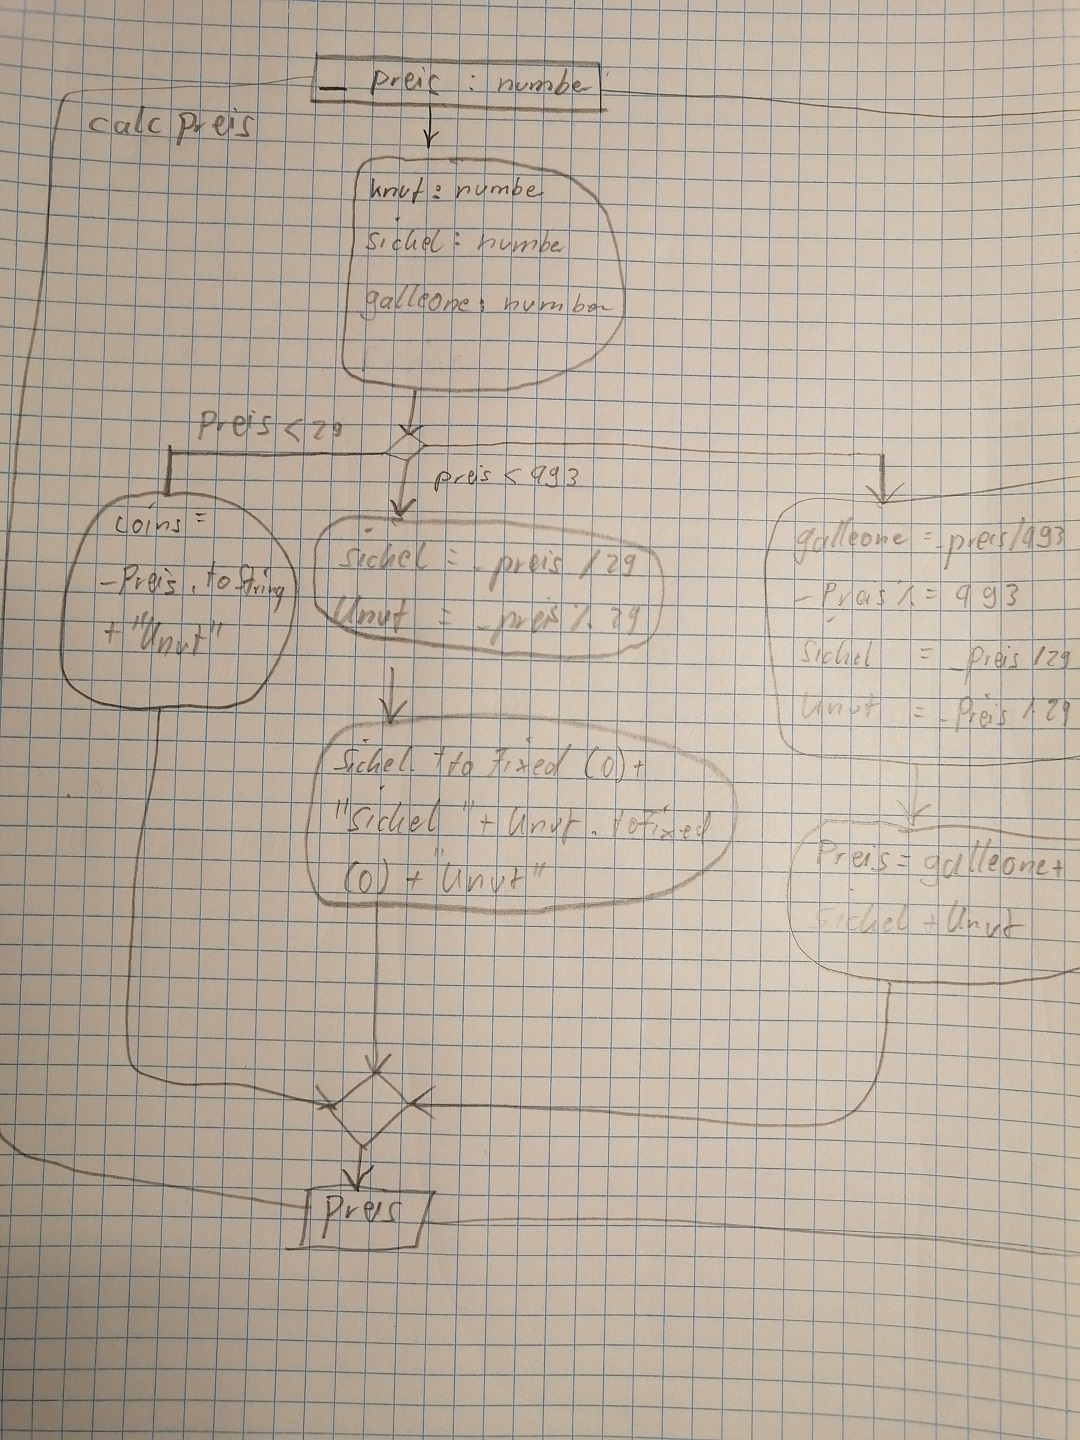 _ preis : number
calc preis
knut : numbe
sickel : number
galleone : number
Preis < 29
preis < 993
coins =
_Preis . to String
+ "Unut"
sickel = _preis / 29
Unut = _preis % 29
galleone = _preis/993
_Preis % = 993
Sickel = _Preis / 29
Unut = _Preis % 29
Sickel. tto Fixed (0) +
"Sickel " + Unut . toFixed
(0) + "Unut"
Preis = galleone +
Sickel + Unut
Preis